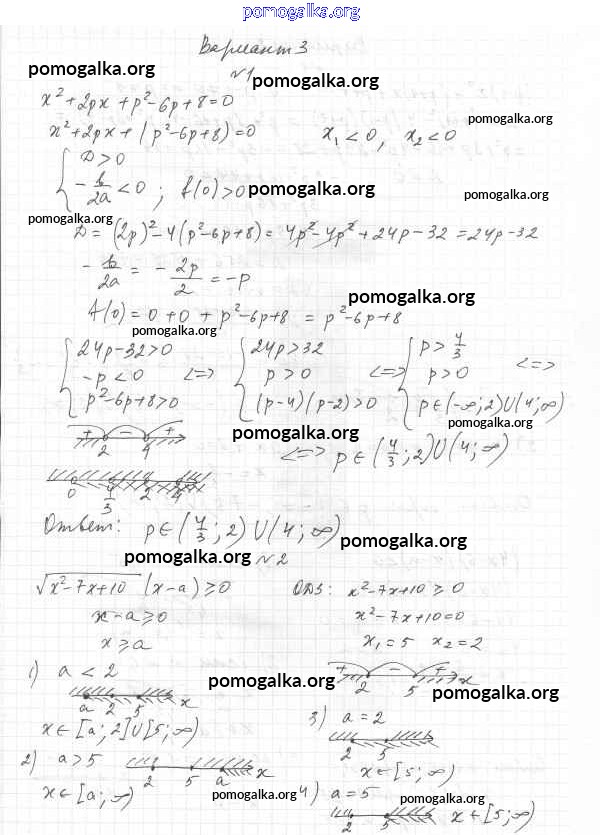 pomogalka.org
Вариант 3
pomogalka.org
№1
pomogalka.org
x² + 2px + p² - 6p + 8 = 0
pomogalka.org
x² + 2px + (p² - 6p + 8) = 0    x₁ < 0, x₂ < 0
{ D > 0
- b/2a < 0 ; f(0) > 0
pomogalka.org
pomogalka.org
pomogalka.org
D = (2p)² - 4(p² - 6p + 8) = 4p² - 4p² + 24p - 32 = 24p - 32
- b/2a = - 2p/2 = -p
pomogalka.org
f(0) = 0 + 0 + p² - 6p + 8 = p² - 6p + 8
pomogalka.org
{ 24p - 32 > 0    { 24p > 32    { p > 4/3
- p < 0 <=> p > 0 <=> p > 0 <=>
p² - 6p + 8 > 0    (p - 4)(p - 2) > 0    p ∈ (-∞; 2) ∪ (4; ∞)
pomogalka.org
pomogalka.org
+ - +
2 4
<=> p ∈ (4/3; 2) ∪ (4; ∞)
0 4/3 2 4
Ответ: p ∈ (4/3; 2) ∪ (4; ∞)
pomogalka.org
pomogalka.org
№2
√x² - 7x + 10 (x - a) ≥ 0    ОДЗ: x² - 7x + 10 ≥ 0
x - a ≥ 0    x² - 7x + 10 = 0
x ≥ a    x₁ = 5 x₂ = 2
1) a < 2
pomogalka.org
+ - +
2 5 x
pomogalka.org
a 2 5 x
x ∈ [a; 2] ∪ [5; ∞)
3) a = 2
2 5
x ∈ [5; ∞)
2) a > 5
2 5 a x
x ∈ [a; ∞)
pomogalka.org
4) a = 5
pomogalka.org
2 5
x ∈ [5; ∞)